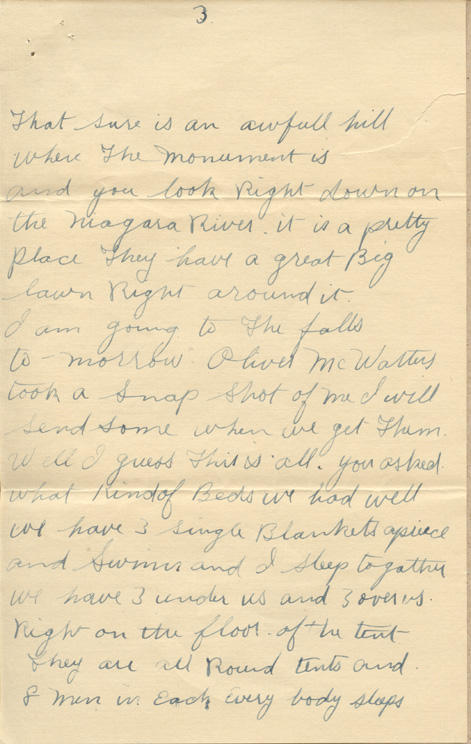 3
That sure is an awfull hill
where The monument is
and you look Right down on
the Niagara River. it is a pretty
Place They have a great Big
lawn Right around it.
I am going to The falls
to-morrow. Oliver McWatters
took a Snap Shot of me I will
send some when we get Them.
Well I guess This is all. you asked.
what Kind of Beds we had well
we have 3 single Blankets apiece
and and I sleep togather
we have 3 under us and 3 over us.
Right on the floor of the tent
They are all Round tents and
8 men in Each Every body sleeps